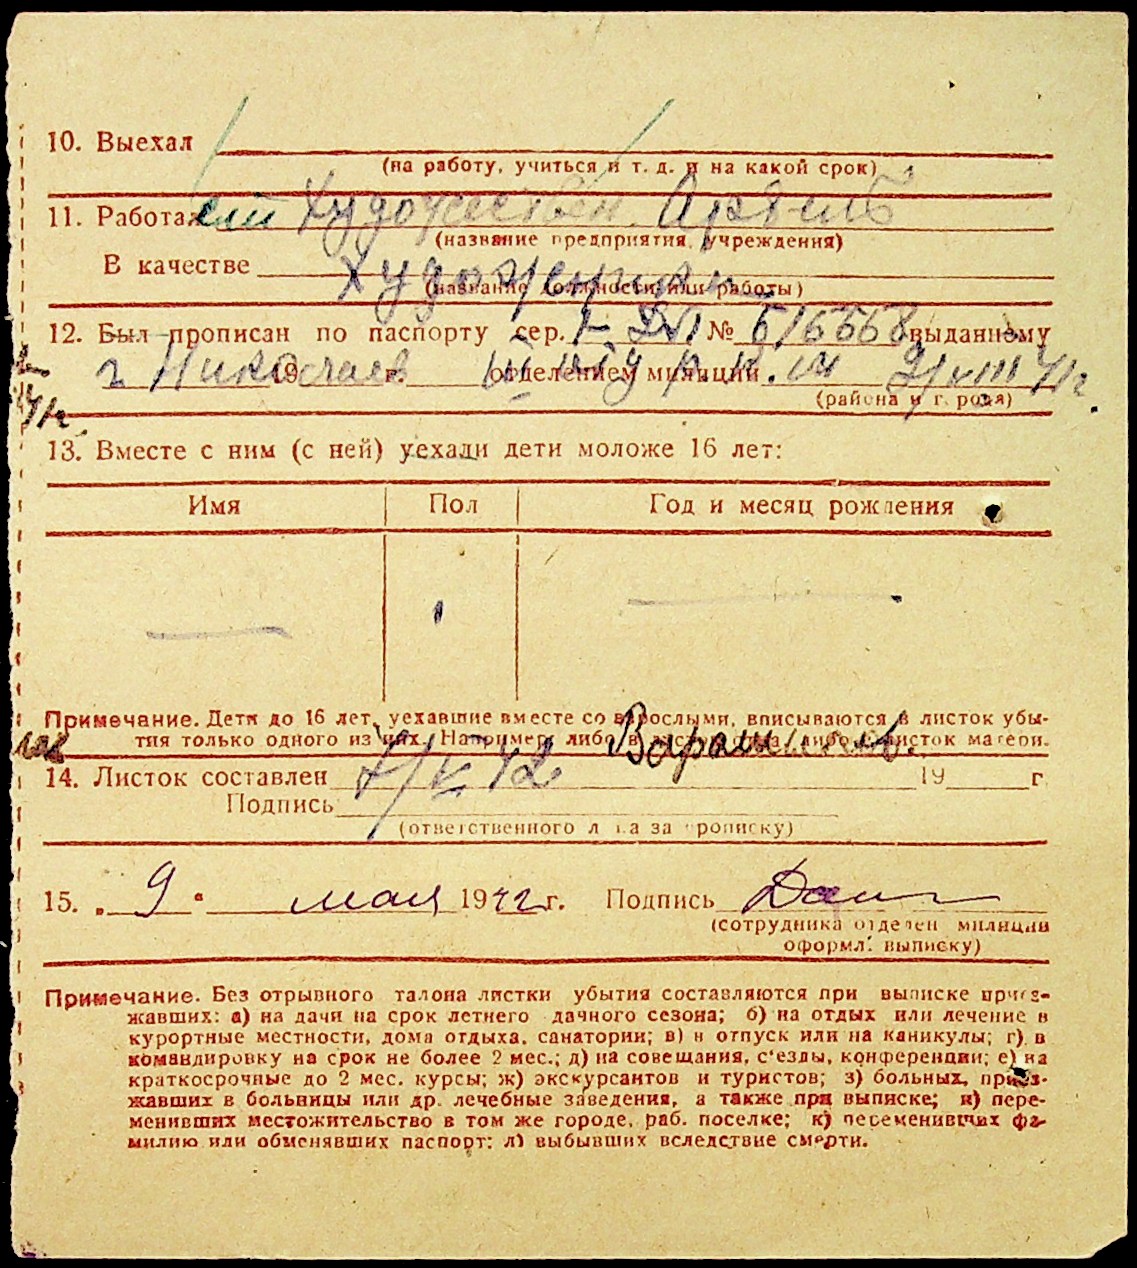 10. Выехал
(на работу, учиться и т. д. и на какой срок)
11. Работал Художествен. Артель
(название предприятия, учреждения)
В качестве Художника
(название должности или работы)
12. Был прописан по паспорту сер. № 516668 выданному
г Николаев 19 г. отделением милиции
(района и города)
13. Вместе с ним (с ней) уехали дети моложе 16 лет:
Имя Пол Год и месяц рождения
Примечание. Дети до 16 лет, уехавшие вместе со взрослыми, вписываются в листок убы-
тия только одного из них. Например либо в листок отца, либо в листок матери.
14. Листок составлен 7/V 42 19 г
Подпись
(ответственного лица за прописку)
15. „ 9 " мая 1942 г. Подпись
(сотрудника отделен милиции
оформл. выписку)
Примечание. Без отрывного талона листки убытия составляются при выписке приез-
жавших: а) на дачи на срок летнего дачного сезона; б) на отдых или лечение в
курортные местности, дома отдыха, санатории; в) в отпуск или на каникулы; г) в
командировку на срок не более 2 мес.; д) на совещания, с'езды, конференции; е) на
краткосрочные до 2 мес. курсы; ж) экскурсантов и туристов; з) больных, приез-
жавших в больницы или др. лечебные заведения, а также при выписке; и) пере-
менивших местожительство в том же городе, раб. поселке; к) переменивших фа-
милию или обменявших паспорт; л) выбывших вследствие смерти.